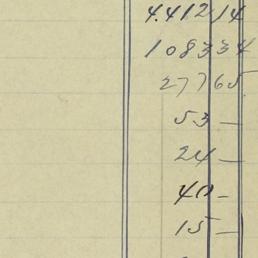 4.412 14
1083 34
277 65
53 —
24 —
40 —
15 —